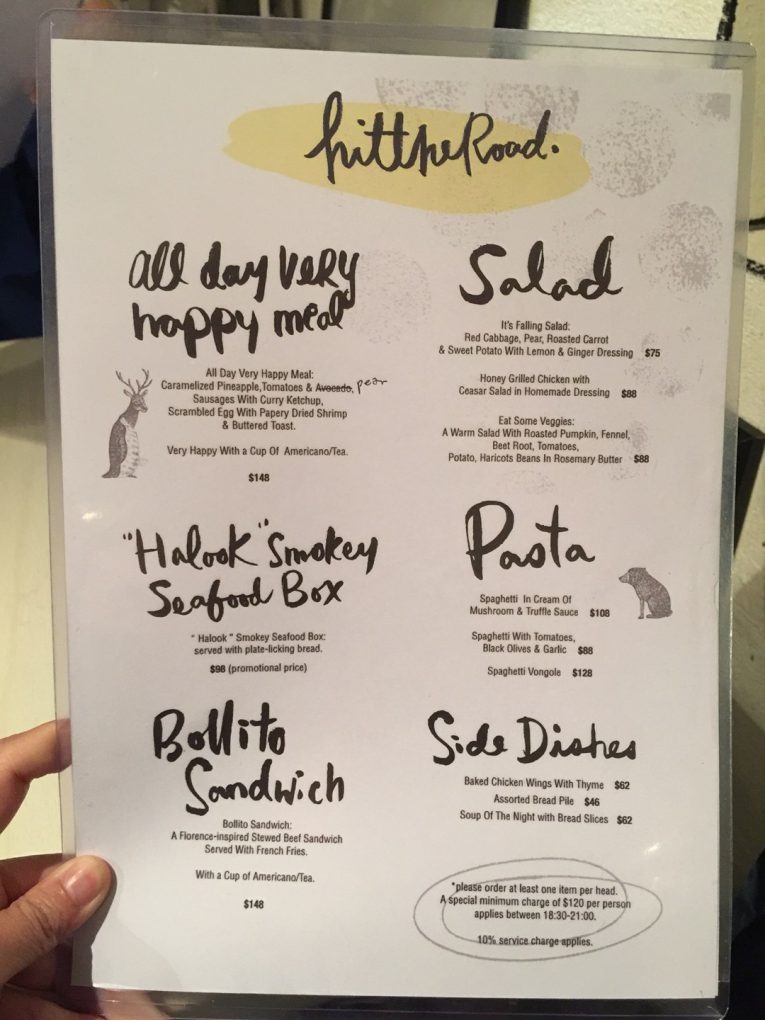 hittheRoad.
all day very
happy meal
All Day Very Happy Meal:
Caramelized Pineapple,Tomatoes & Avocado, pear
Sausages With Curry Ketchup,
Scrambled Egg With Papery Dried Shrimp
& Buttered Toast.
Very Happy With a Cup Of Americano/Tea.
$148
"Halook" Smokey
Seafood Box
" Halook " Smokey Seafood Box:
served with plate-licking bread.
$98 (promotional price)
Bollito
Sandwich
Bollito Sandwich:
A Florence-inspired Stewed Beef Sandwich
Served With French Fries.
With a Cup of Americano/Tea.
$148
Salad
It's Falling Salad:
Red Cabbage, Pear, Roasted Carrot
& Sweet Potato With Lemon & Ginger Dressing $75
Honey Grilled Chicken with
Ceasar Salad in Homemade Dressing $88
Eat Some Veggies:
A Warm Salad With Roasted Pumpkin, Fennel,
Beet Root, Tomatoes,
Potato, Haricots Beans In Rosemary Butter $88
Pasta
Spaghetti In Cream Of
Mushroom & Truffle Sauce $108
Spaghetti With Tomatoes,
Black Olives & Garlic $88
Spaghetti Vongole $128
Side Dishes
Baked Chicken Wings With Thyme $62
Assorted Bread Pile $46
Soup Of The Night with Bread Slices $62
*please order at least one item per head.
A special minimum charge of $120 per person
applies between 18:30-21:00.
10% service charge applies.